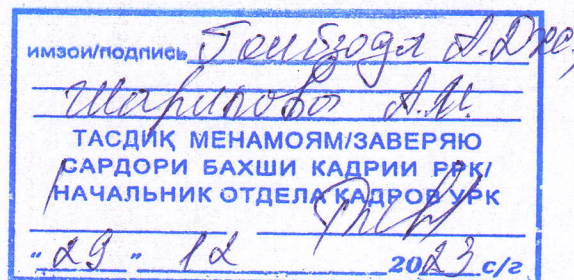 имзои/подпись Гоибзода А.Дж.,
Шариповой А.М.
ТАСДИҚ МЕНАМОЯМ/ЗАВЕРЯЮ
САРДОРИ БАХШИ КАДРИИ РРК/
НАЧАЛЬНИК ОТДЕЛА КАДРОВ УРК
" 29 " 12 2023 с/г